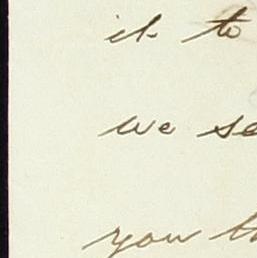 it to
we se
you th